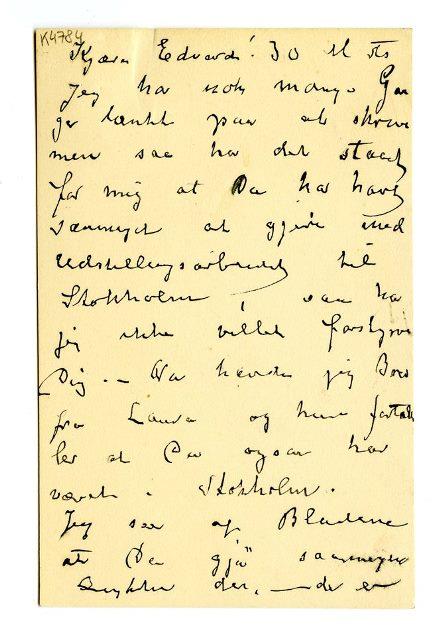 K4784
Kjære Edvard! 30
Jeg har nok mange Gan
ger tænkt paa at skrive
men saa har det staaet
for mig at Du har havt
saameget at gjøre med
Udstillingsarbeidet til
Stokholm, saa har
jeg ikke villet forstyrre
Dig. — Nu havde jeg Brev
fra Laura og hun fortæl
ler at Du ogsaa har
været i Stokholm.
Jeg saa af Bladene
at Du gjør saameget
Lykke der, — de er